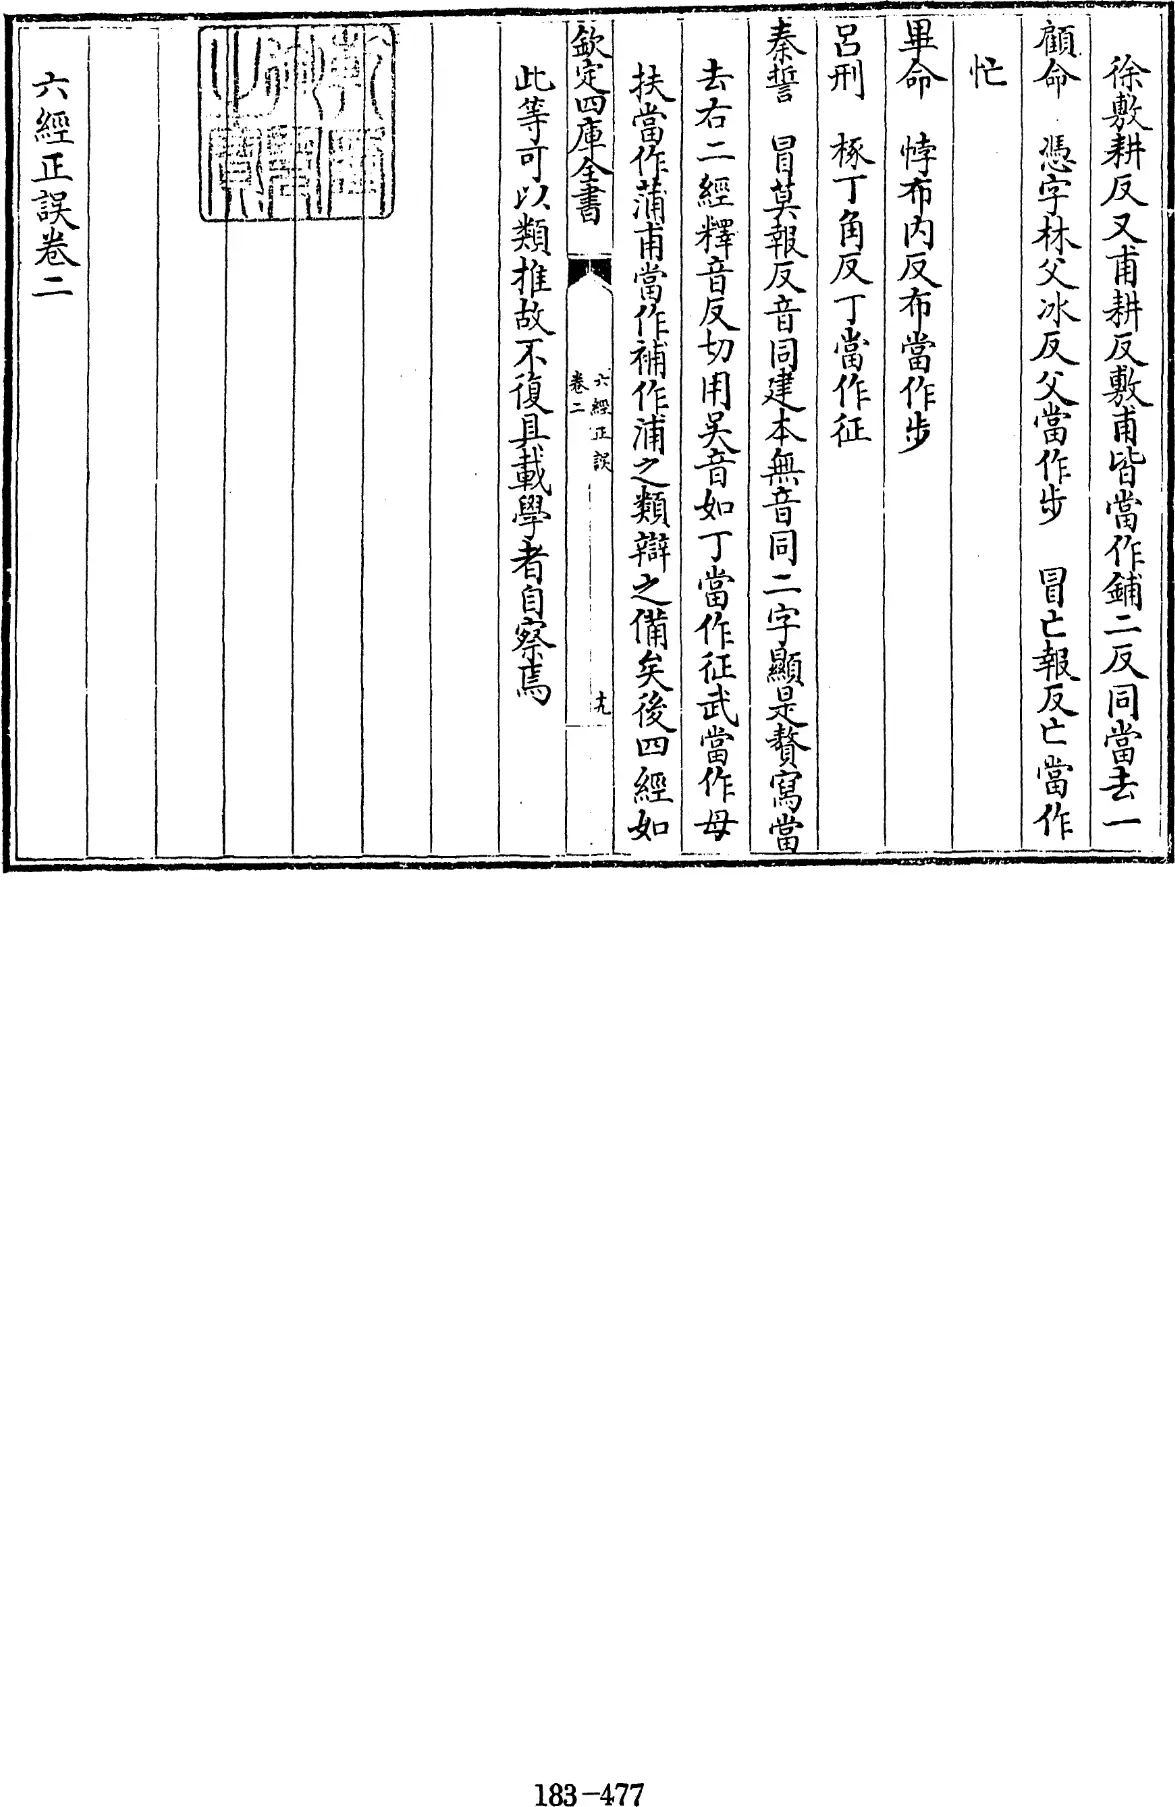 徐敷耕反又甫耕反敷甫皆當作鋪二反同當去一
顧命　憑字林父冰反父當作步　冒亡報反亡當作
忙
畢命　悖布内反布當作步
呂刑　椓丁角反丁當作征
秦誓　冒莫報反音同建本無音同二字顯是贅寫當
去右二經釋音反切用吳音如丁當作征武當作母
扶當作蒲甫當作補作浦之類辯之備矣後四經如
欽定四庫全書
六經正誤
卷二
十九
此等可以類推故不復具載學者自察焉
六經正誤卷二
183-477